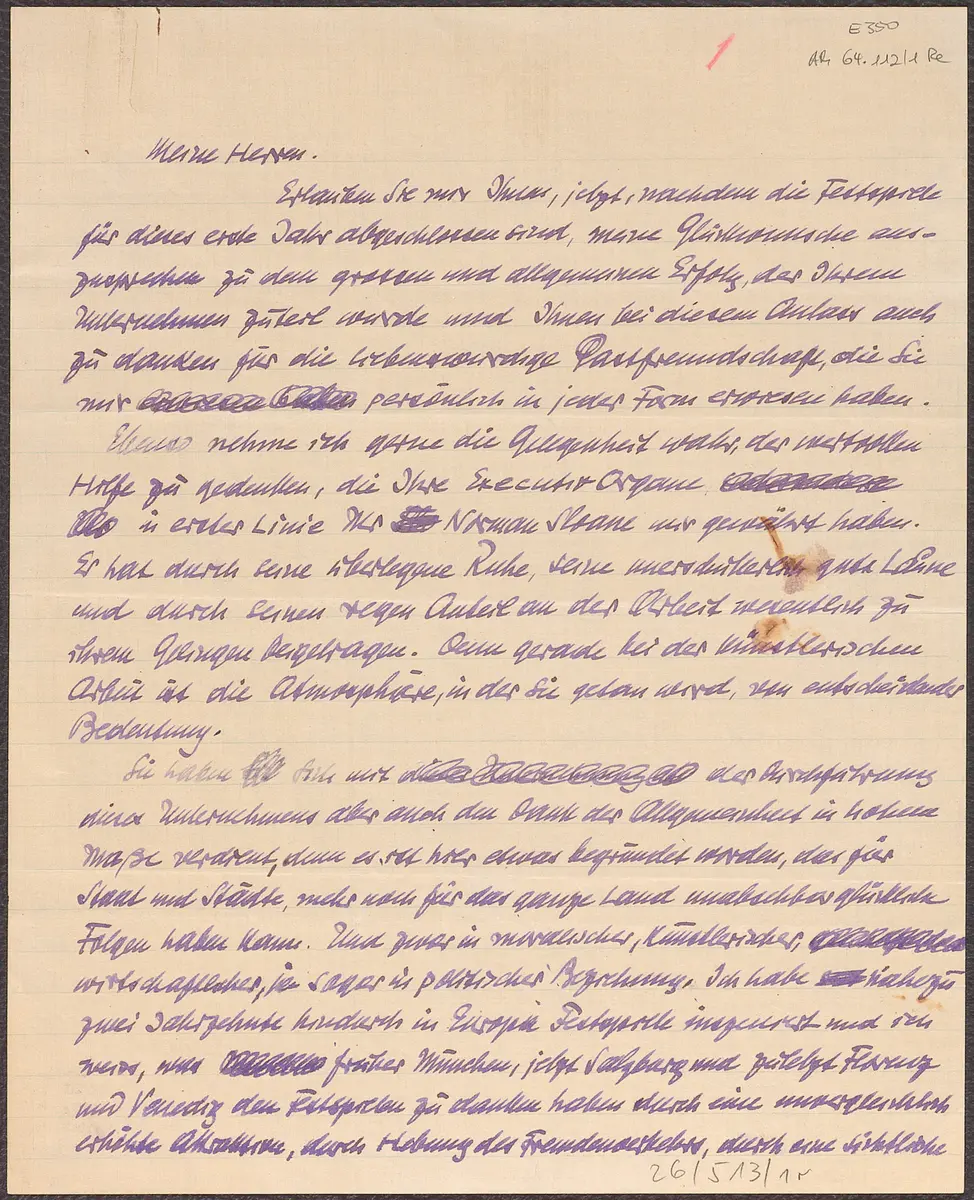 E 350
1
AR 64.112/1 Re
Meine Herren.
Erlauben Sie mir Ihnen, jetzt, nachdem die Festspiele
für dieses erste Jahr abgeschlossen sind, meine Glückwünsche aus-
zusprechen zu dem grossen und allgemeinen Erfolg, der Ihrem
Unternehmen zuteil wurde und Ihnen bei diesem Anlass auch
zu danken für die liebenswürdige Gastfreundschaft, die Sie
mir persönlich in jeder Form erwiesen haben.
Ebenso nehme ich gerne die Gelegenheit wahr, der wertvollen
Hilfe zu gedenken, die Ihre Executiv Organe
in erster Linie Mr Norman Sloane mir gewährt haben.
Er hat durch seine überlegene Ruhe, seine unerschütterlich gute Laune
und durch seinen regen Anteil an der Arbeit wesentlich zu
ihrem Gelingen beigetragen. Denn gerade bei der künstlerischen
Arbeit ist die Atmosphäre, in der Sie getan wird, von entscheidender
Bedeutung.
Sie haben sich mit der Durchführung
dieses Unternehmens aber auch den Dank der Allgemeinheit in hohem
Maße verdient, denn es ist hier etwas begründet worden, das für
Staat und Städte, mehr noch für das ganze Land unabsehbar glückliche
Folgen haben kann. Und zwar in moralischer, künstlerischer,
wirtschaftlicher, ja sogar in politischer Beziehung. Ich habe nahezu
zwei Jahrzehnte hindurch in Europa Festspiele inszeniert und ich
weiss, was früher München, jetzt Salzburg und zuletzt Florenz
und Venedig den Festspielen zu danken haben durch eine unvergleichlich
erhöhte Attraktion, durch Hebung des Fremdenverkehrs, durch eine sichtliche
26/513/1r